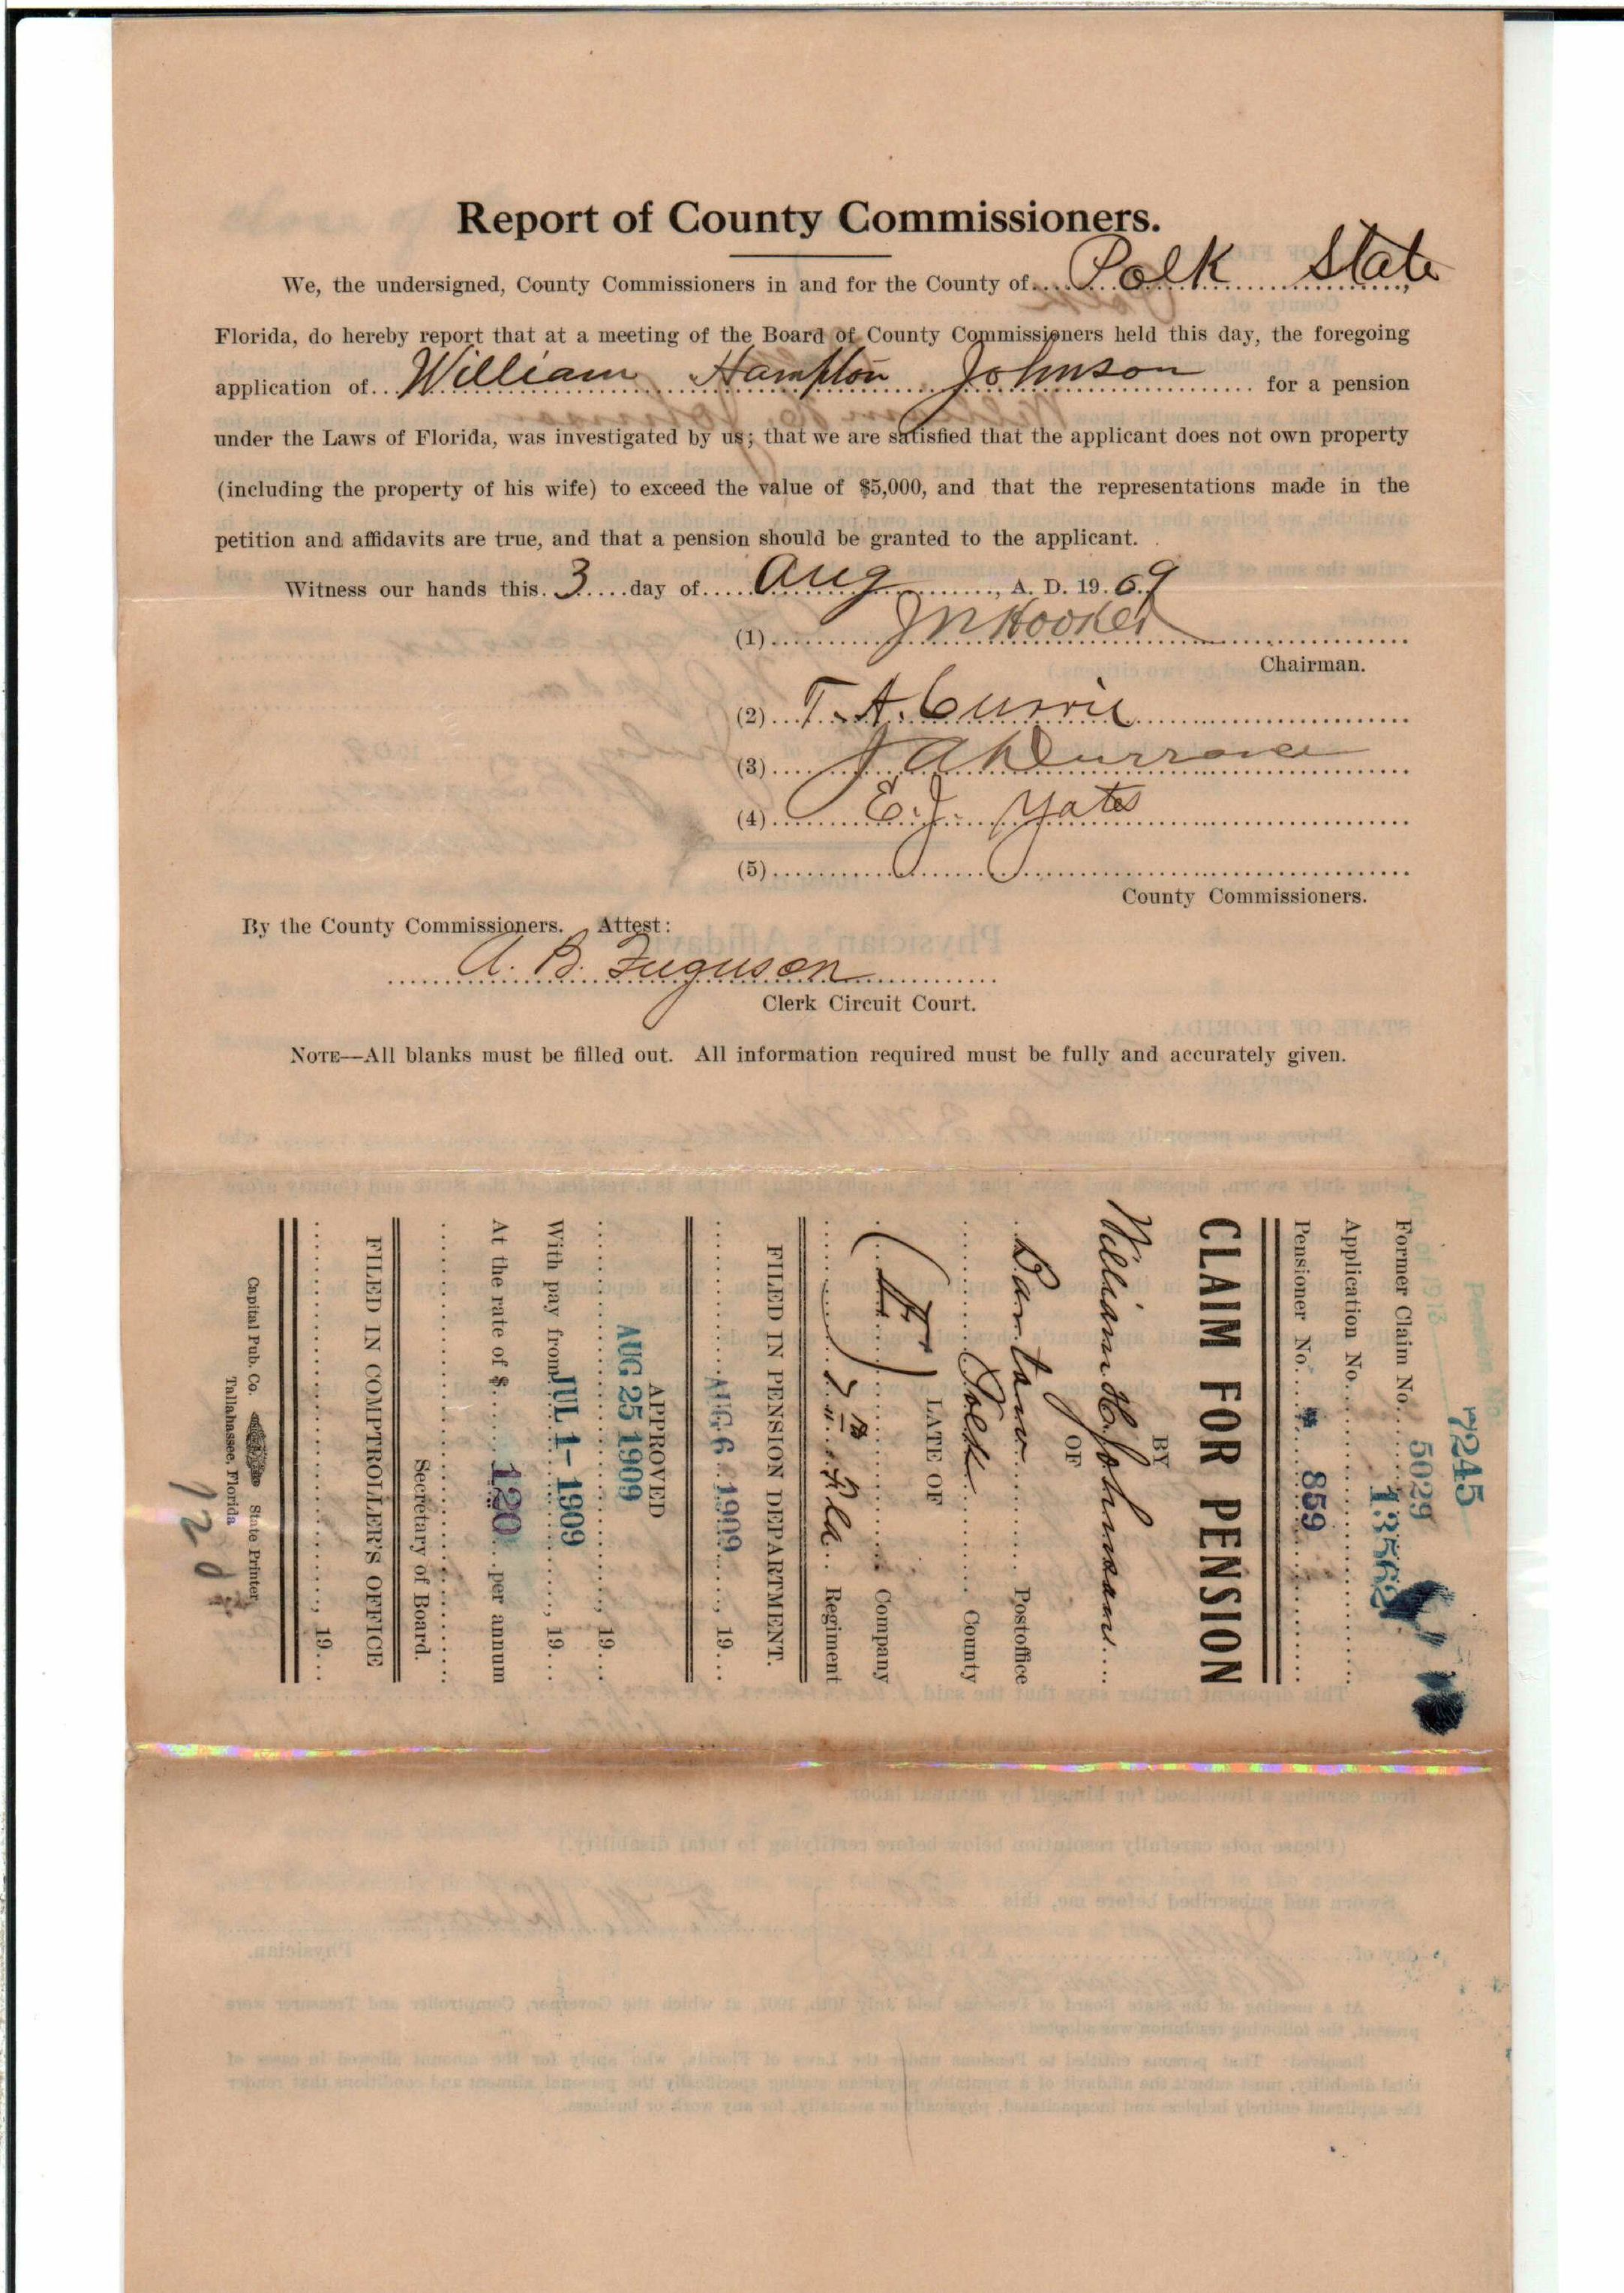 Report of County Commissioners.
We, the undersigned, County Commissioners in and for the County of....Polk State,
Florida, do hereby report that at a meeting of the Board of County Commissioners held this day, the foregoing
application of..William Hampton Johnson.... for a pension
under the Laws of Florida, was investigated by us; that we are satisfied that the applicant does not own property
(including the property of his wife) to exceed the value of $5,000, and that the representations made in the
petition and affidavits are true, and that a pension should be granted to the applicant.
Witness our hands this.3....day of.....Aug......, A. D. 19.09
(1)....J N Hooker....
Chairman.
(2)...T. A. Currie....
(3)....J A Durrance....
(4)....E. J. Yates....
(5)....
County Commissioners.
By the County Commissioners. Attest:
....A. B. Fuguson....
Clerk Circuit Court.
NOTE—All blanks must be filled out. All information required must be fully and accurately given.
Pension No.
7245
Act of 1913
Former Claim No. 5029
Application No. 13562
Pensioner No. 859
CLAIM FOR PENSION
BY
William H. Johnson
OF
Bartow Postoffice
Polk County
LATE OF
Company
7th Fla Regiment
FILED IN PENSION DEPARTMENT.
AUG 6 1909, 19...
APPROVED
AUG 25 1909, 19...
With pay from JUL 1- 1909, 19...
At the rate of $ 120 per annum
Secretary of Board.
FILED IN COMPTROLLER'S OFFICE
...., 19...
Capital Pub. Co. State Printer
Tallahassee, Florida